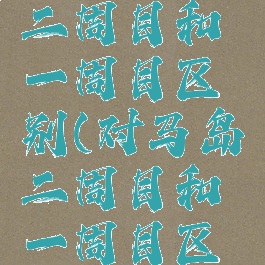 二周目和
一周目区
别(对马岛
二周目和
一周目区